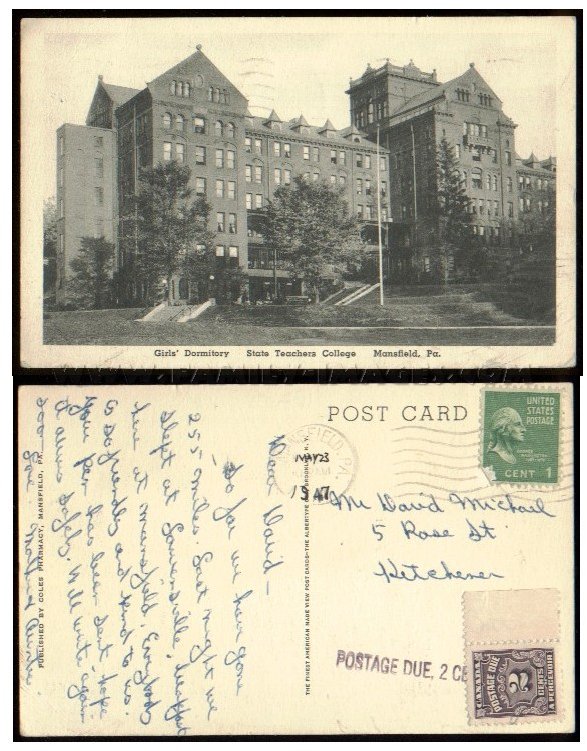 Girls' Dormitory State Teachers College Mansfield, Pa.
POST CARD
UNITED STATES POSTAGE
CENT 1
MANSFIELD, PA.
MAY 23
1947
Mr David Michael
5 Rose St
Kitchener
POSTAGE DUE, 2 CE
CANADA
POSTAGE DUE
2
CENTS
A PERCEVOIR
Dear David—
So far we have gone
255 miles. Last night we
slept at breakfast
here at Mansfield. Everybody
is so friendly and kind to us.
Your pen has been sent - hope
it arrives safely. Will write again
soon
PUBLISHED BY COLES PHARMACY, MANSFIELD, PA.
THE FINEST AMERICAN MADE VIEW POST CARDS—THE ALBERTYPE CO., BROOKLYN, N. Y.